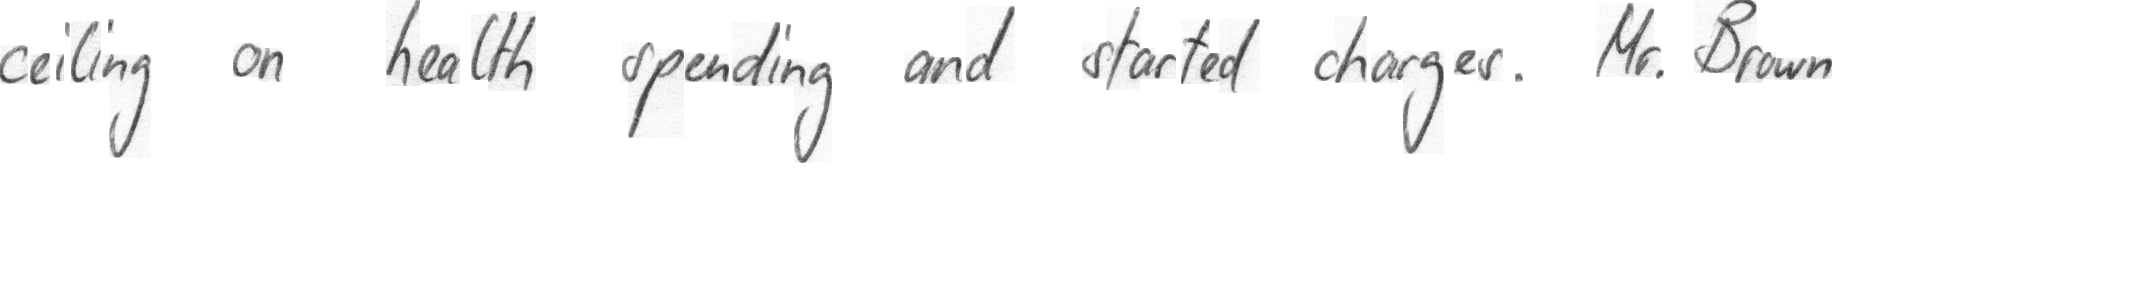 ceiling on health spending and started charges. Mr. Brown